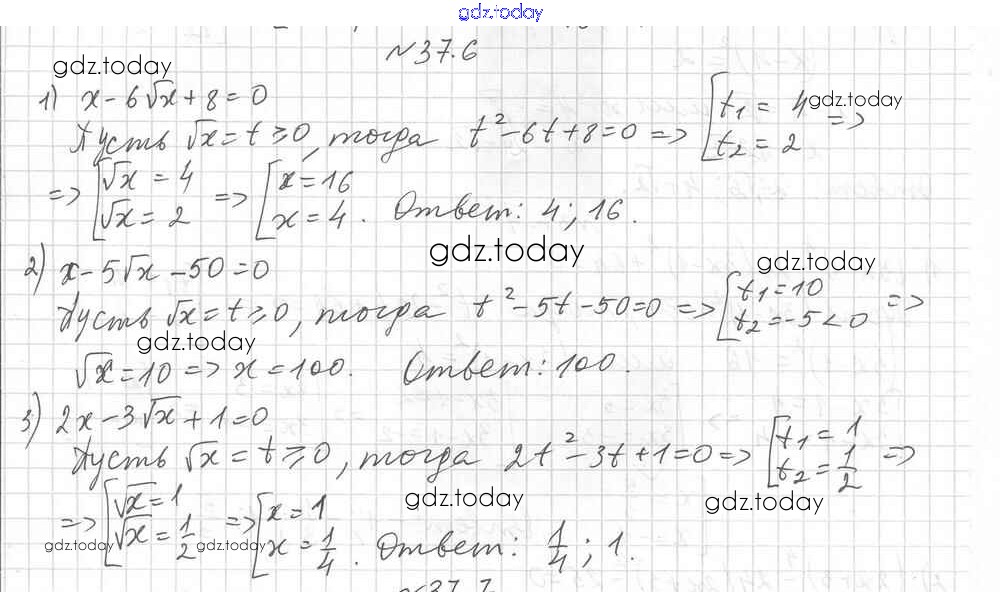 gdz.today
№37.6
gdz.today
1) x - 6√x + 8 = 0
Пусть √x = t ≥ 0, тогда t² - 6t + 8 = 0 => [t₁ = 4 t₂ = 2 =>
gdz.today
=> [√x = 4 √x = 2 => [x = 16 x = 4. Ответ: 4; 16.
gdz.today
2) x - 5√x - 50 = 0
gdz.today
Пусть √x = t ≥ 0, тогда t² - 5t - 50 = 0 => [t₁ = 10 t₂ = -5 < 0 =>
gdz.today
√x = 10 => x = 100. Ответ: 100.
3) 2x - 3√x + 1 = 0
Пусть √x = t ≥ 0, тогда 2t² - 3t + 1 = 0 => [t₁ = 1 t₂ = 1/2 =>
gdz.today gdz.today
=> [√x = 1 √x = 1/2 => [x = 1 x = 1/4. Ответ: 1/4; 1.
gdz.today gdz.today
№37.7